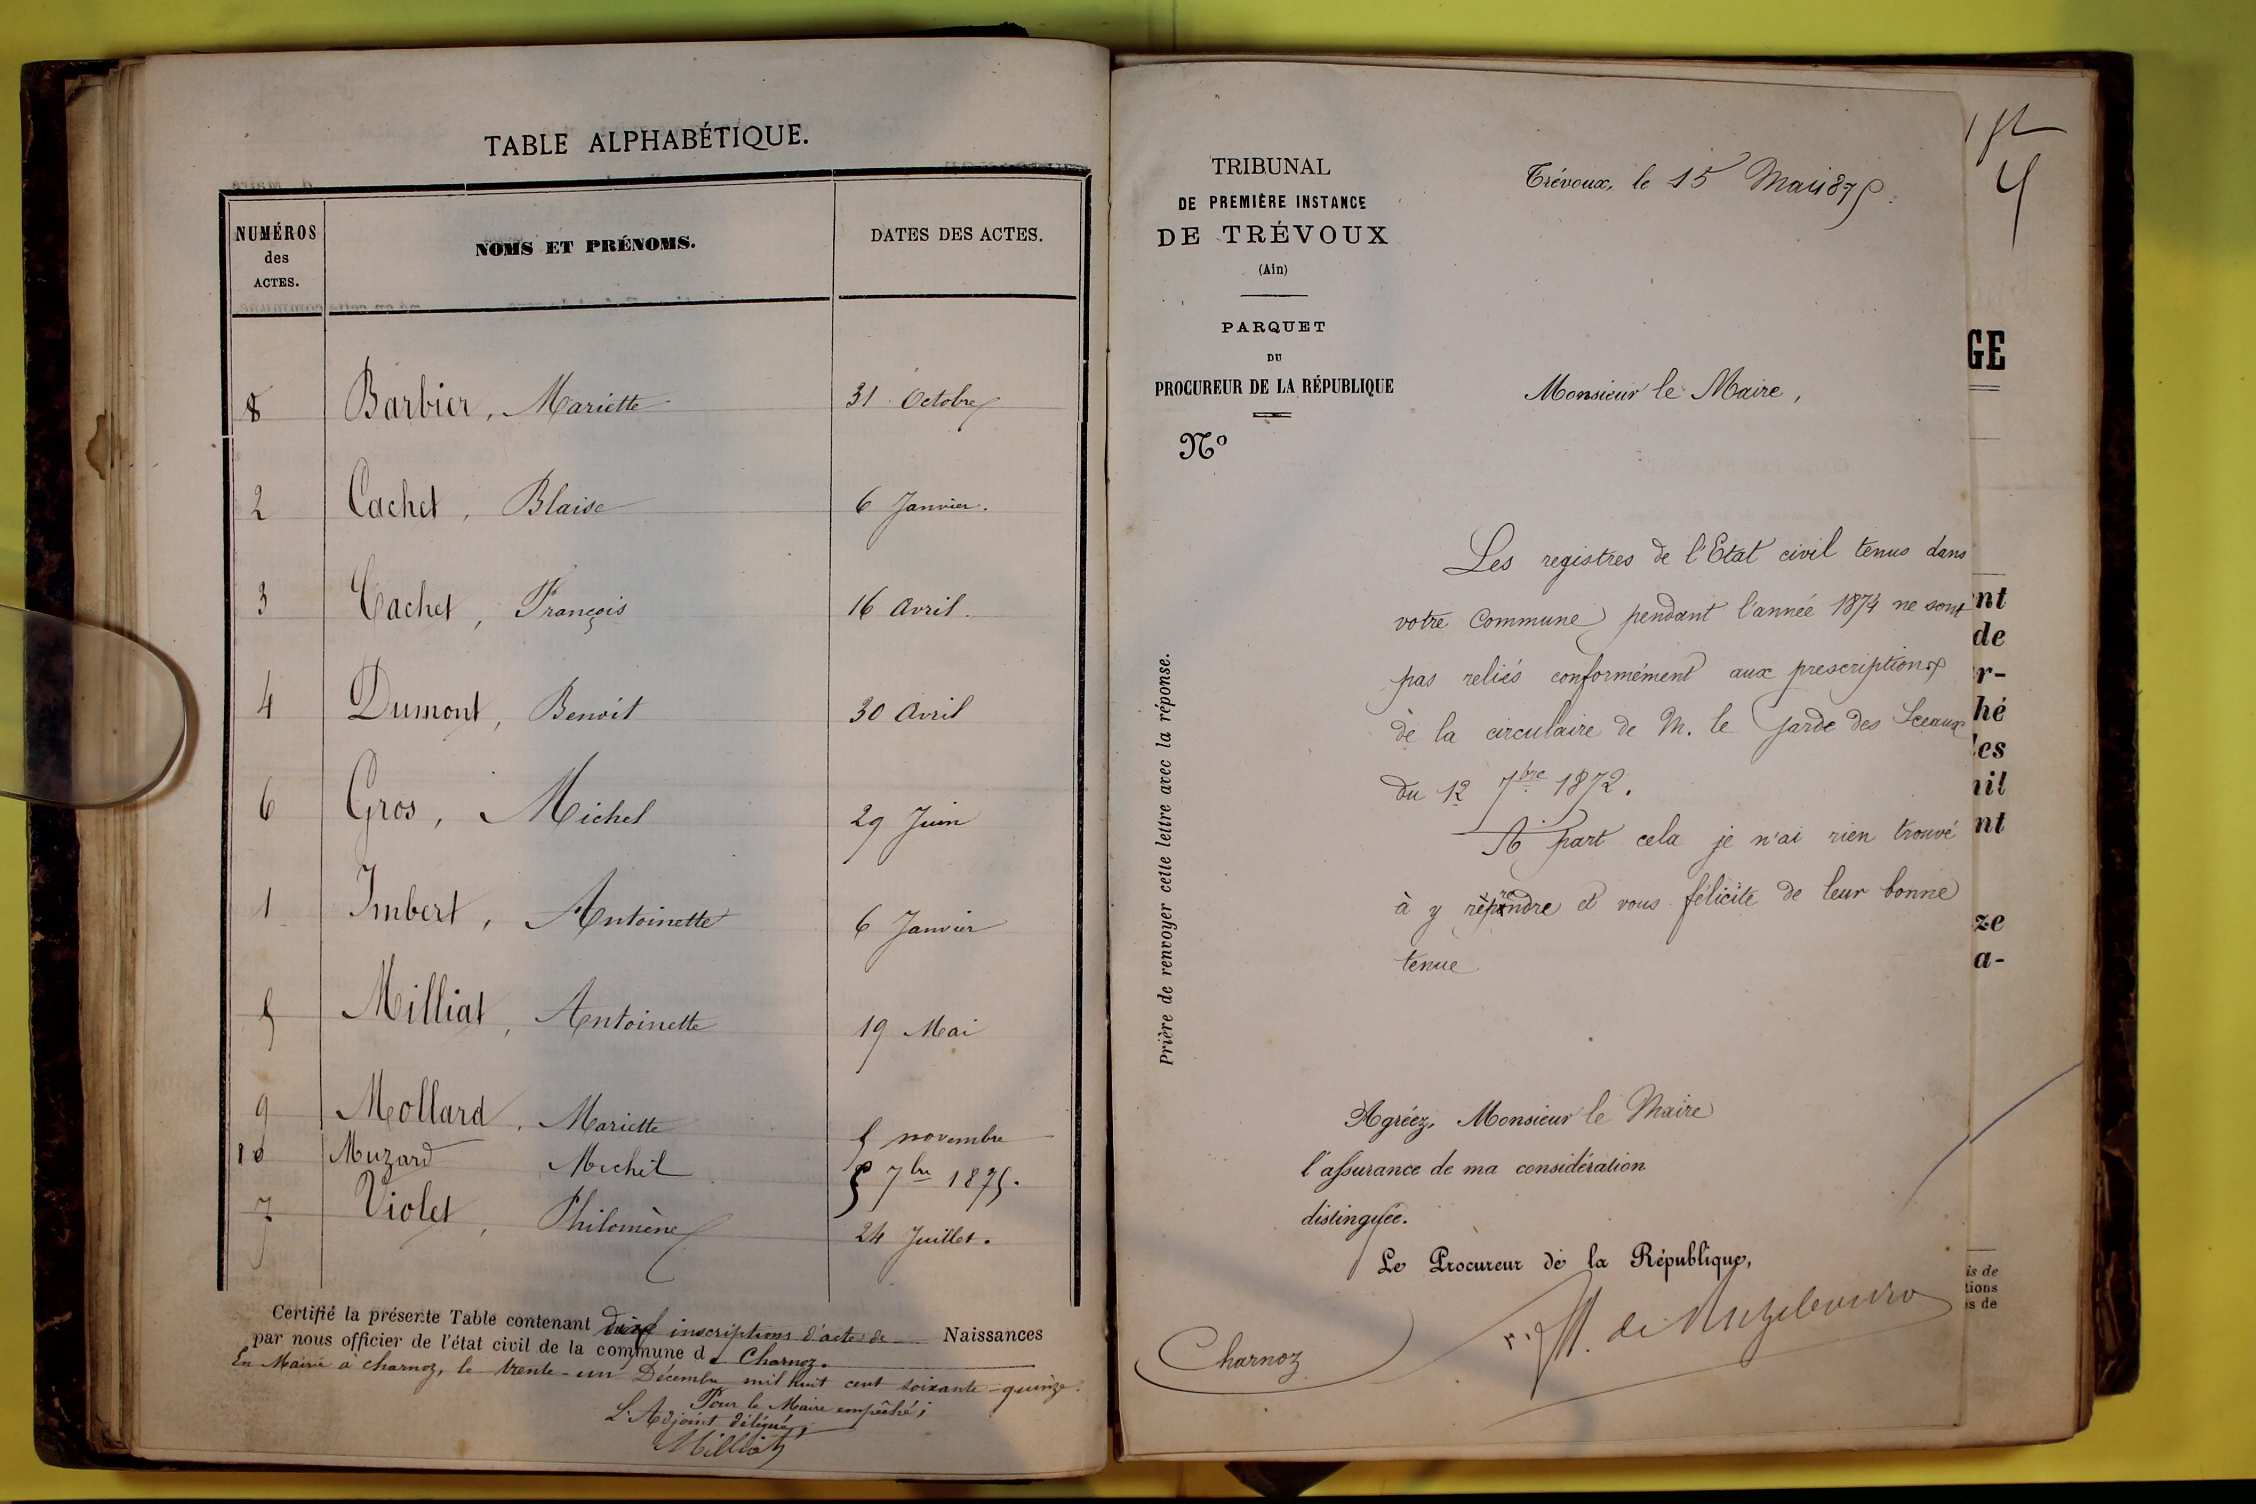 TABLE ALPHABÉTIQUE.
NUMÉROS
des
ACTES.
NOMS ET PRÉNOMS.
DATES DES ACTES.
8 Barbier, Mariette 31 Octobre
2 Cachet, Blaise 6 Janvier.
3 Cachet, François 16 Avril.
4 Dumont, Benoit 30 Avril
6 Gros, Michel 29 Juin
1 Imbert, Antoinette 6 Janvier
5 Milliat, Antoinette 19 Mai
9 Mollard, Mariette 5 novembre
10 Muzard Michel 5 7bre 1875.
7 Violet, Philomène 24 Juillet.
Certifié la présente Table contenant inscriptions d'acte de Naissances
par nous officier de l'état civil de la commune de Charnoz.
En Mairie à Charnoz, le trente-un Décembre mil huit cent soixante-quinze.
Pour le Maire empêché;
L'Adjoint délégué,
Milliat
TRIBUNAL
DE PREMIÈRE INSTANCE
DE TRÉVOUX
(Ain)
PARQUET
DU
PROCUREUR DE LA RÉPUBLIQUE
No
Prière de renvoyer cette lettre avec la réponse.
Trévoux, le 15 Mai 1875.
Monsieur le Maire,
Les registres de l'Etat civil tenus dans
votre Commune pendant l'année 1874 ne sont
pas reliés conformément aux prescriptions
de la circulaire de M. le Garde des Sceaux
du 12 7bre 1872.
A part cela je n'ai rien trouvé
à y reprendre et vous félicite de leur bonne
tenue
Agréez, Monsieur le Maire
l'assurance de ma considération
distinguée.
Le Procureur de la République,
Charnoz
GE
nt
de
r-
hé
les
nil
nt
ze
a-
is de
tions
s de